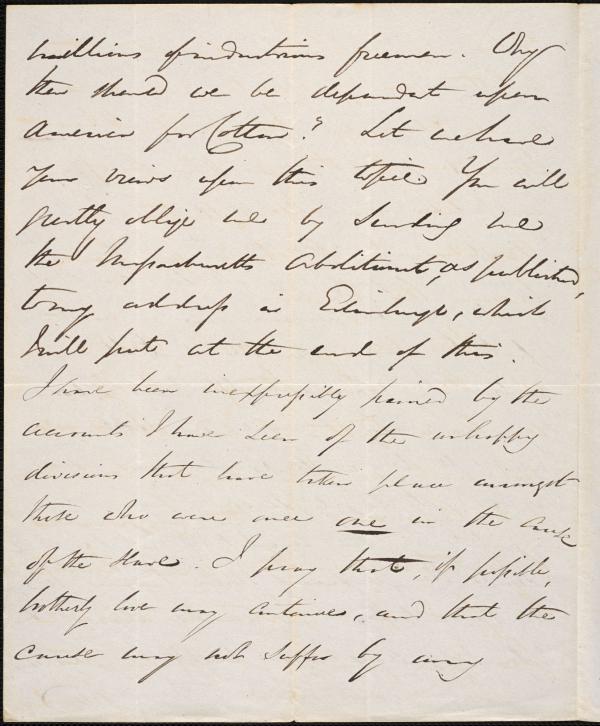 millions of industrious freemen. Why
then should we be dependent upon
America for Cotton? Let me have
your views upon this topic. You will
greatly oblige me by sending me
the Massachusetts Abolitionist, as published,
to my address in Edinburgh, which
I will put at the end of this.
I have been inexpressibly pained by the
accounts I have seen of the unhappy
divisions that have taken place amongst
those who were once one in the cause
of the Slave. I pray that, if possible,
brotherly love may continue, and that the
cause may not suffer by any